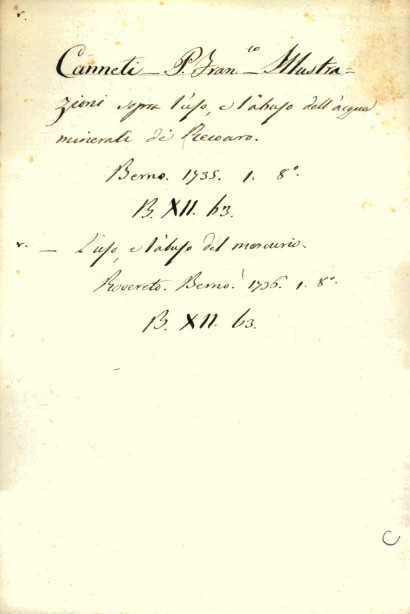 v.
Canneti _ P. Fran.co _ Illustra=
zioni sopra l'uso, e l'abuso dell'acqua
minerale di Recoaro.
Berno. 1735. 1. 8°.
B. XII. 63.
v. _ L'uso, e l'abuso del mercurio.
Rovereto. Berno. 1736. 1. 8°.
B. XII. 63.
C